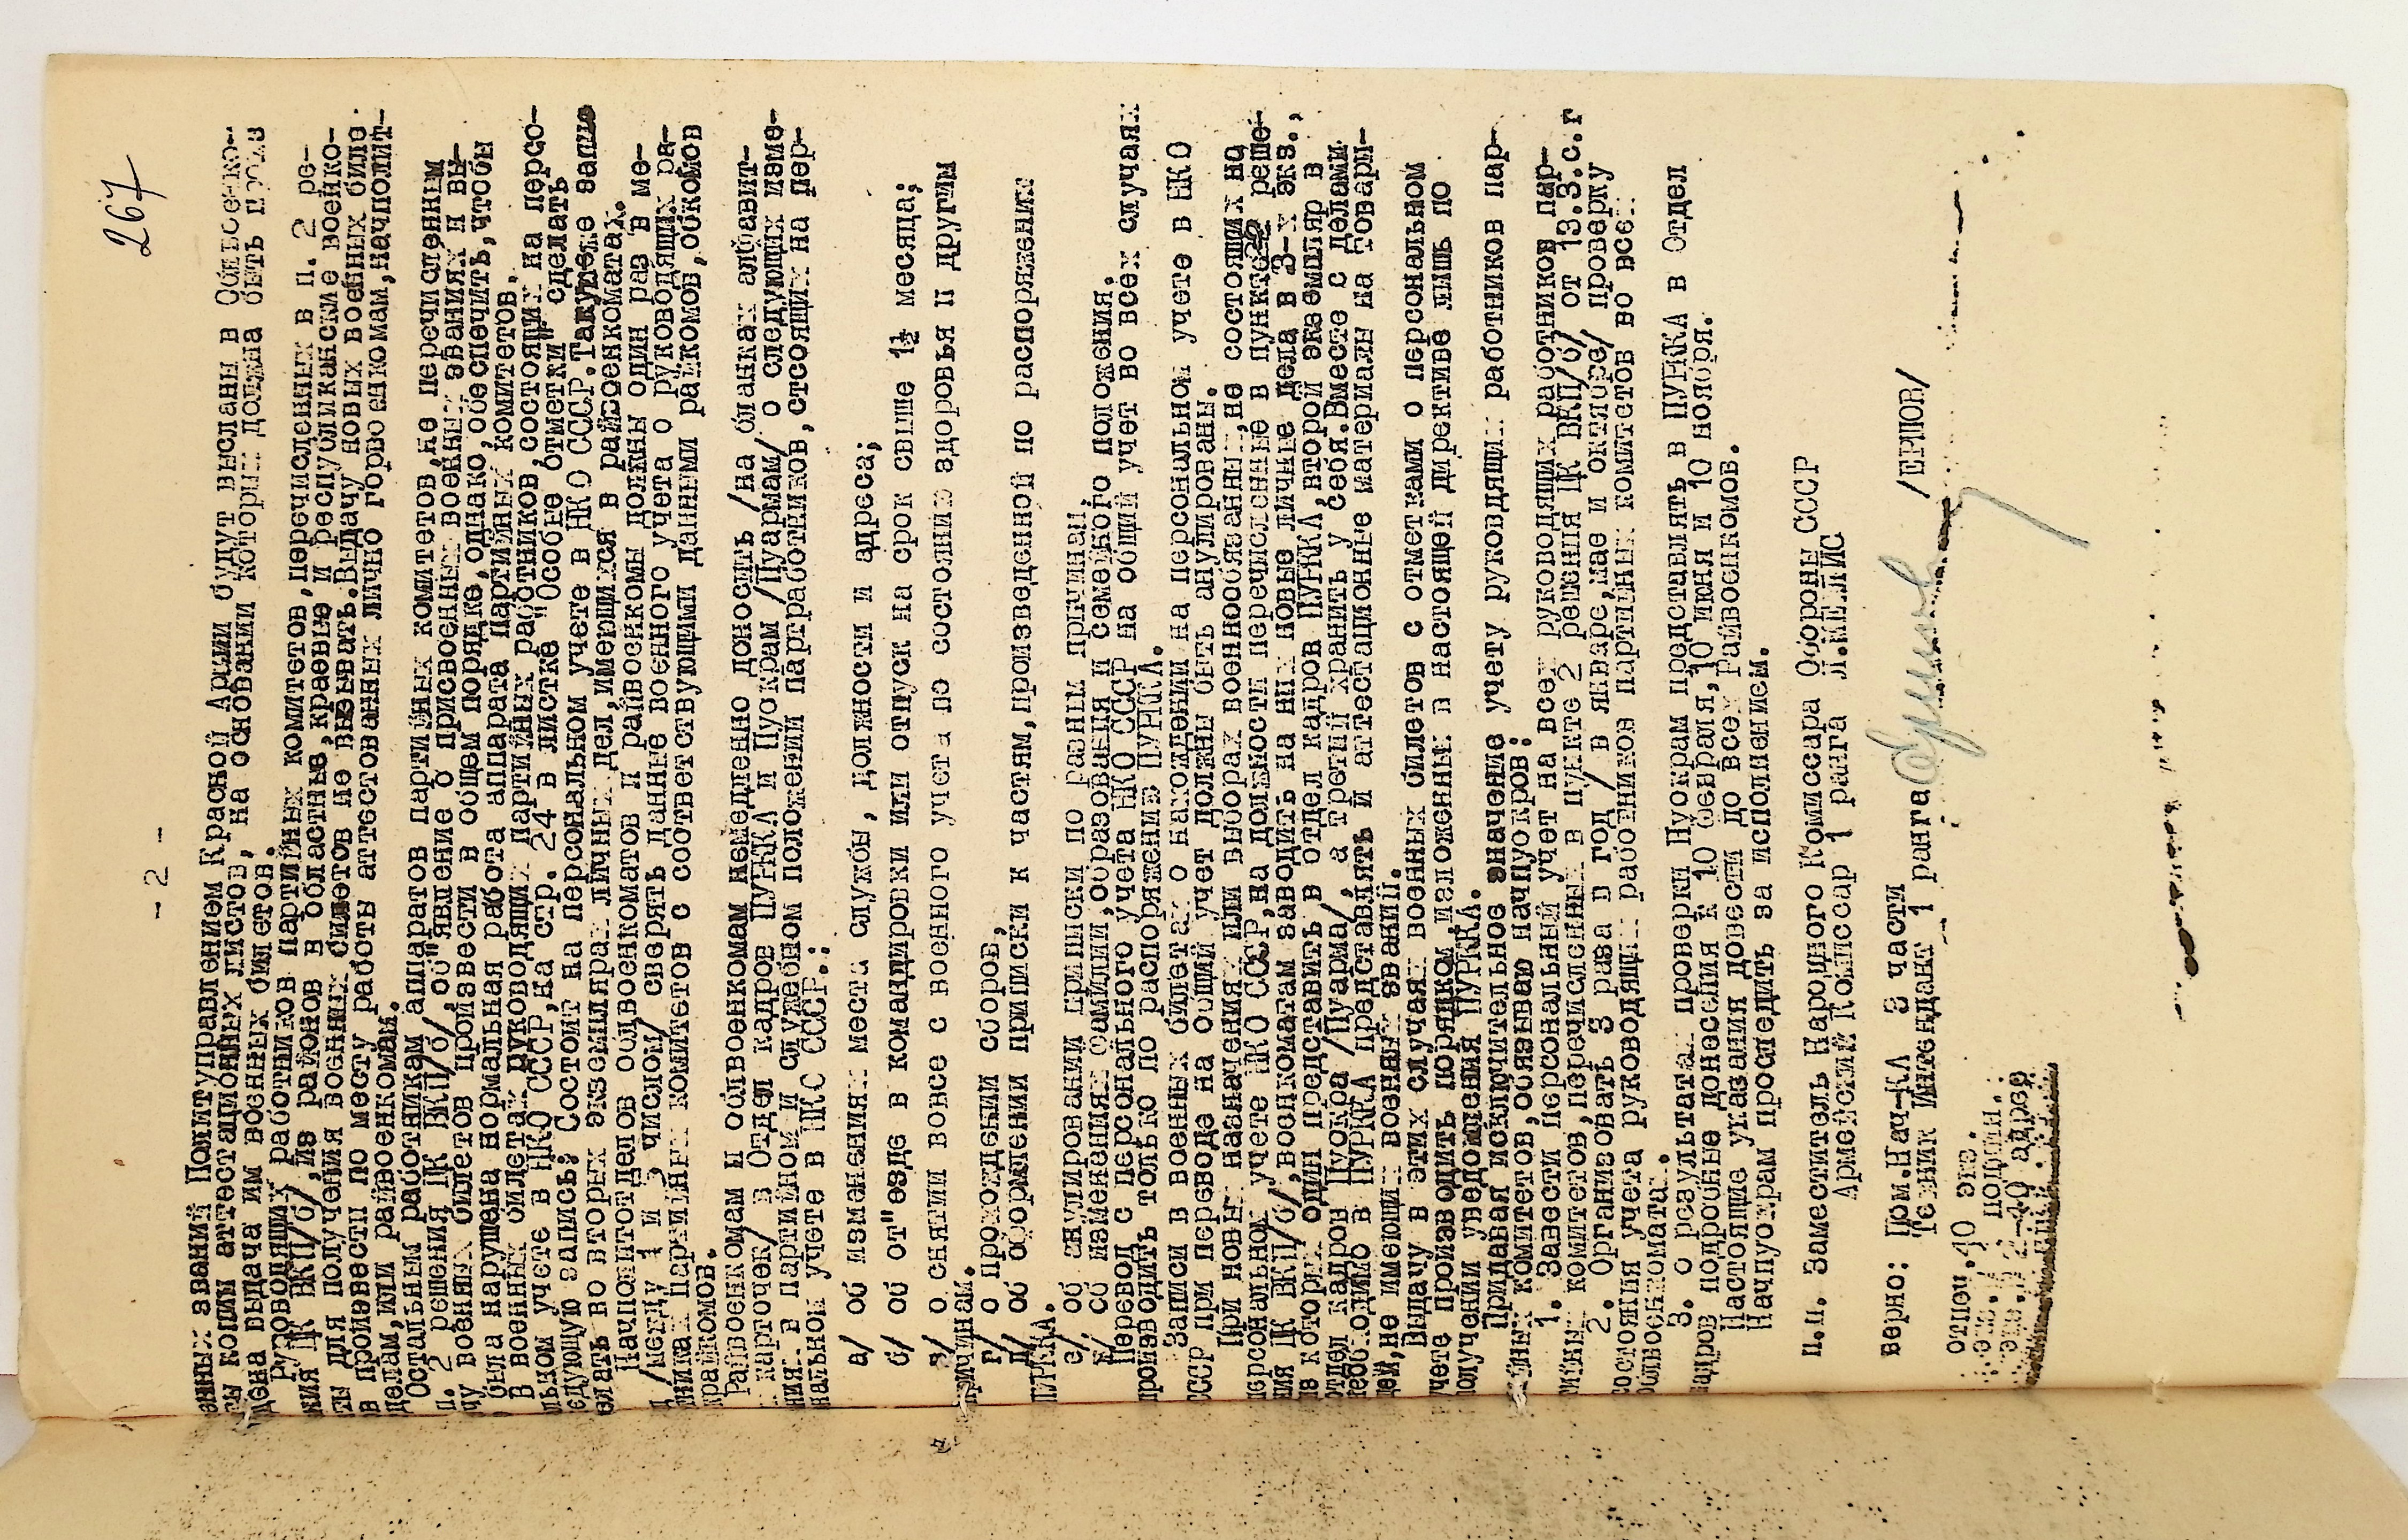 267
- 2 -
енных званий Политуправлением Красной Армии будут высланы в Облвоенко-
ты копии аттестационных листов, на основании которых должна быть произ
дена выдача им военных билетов.
Руководящих работников партийных комитетов,перечисленных в п. 2 ре-
ния ЦК ВКП/б/,из районов в областные,краевые и республиканские военко-
ты для получения военных билетов не вызывать.Выдачу новых военных биле
в произвести по месту работы аттестованных лично горвоенкомам,начполит-
делам,или райвоенкомам.
Остальным работникам аппаратов партийных комитетов,не перечисленным
п. 2 решения ЦК ВКП/б/,об"явление о присвоенных военных званиях и вы-
чу военных билетов произвести в общем порядке,однако,обеспечить,чтобы
была нарушена нормальная работа аппарата партийных комитетов.
В военных билетах руководящих партийных работников,состоящих на персо-
льном учете в НКО СССР,на стр. 24 в листке "Особые отметки" сделать
едующую запись: Состоит на персональном учете в НКО СССР.Такую же запис
елать во вторых экземплярах личных дел,имеющихся в райвоенкоматах.
Начполитотделов облвоенкоматов и райвоенкомы должны один раз в ме-
ц /между 1 и 3 числом/ сверять данные военного учета о руководящих ра-
тниках партийных комитетов с соответствующими данными райкомов,обкомов
крайкомов.
Райвоенкомам и облвоенкомам немедленно доносить /на бланках алфавит-
х карточек/ в Отдел кадров ПУРККА и Пуокрам /Пуармам/ о следующих изме-
ниях в партийном и служебном положении партработников,стсоящих на пер-
нальном учете в НКС СССР.:
а/ об изменениях места службы, должности и адреса;
б/ об от"езде в командировки или отпуск на срок свыше 1½ месяца;
в/ о снятии вовсе с военного учета по состоянию здоровья и другим
причинам.
г/ о прохождении сборов,
д/ об оформлении приписки к частям,произведенной по распоряжению
ПУРККА.
е/ об анулировании приписки по разным причинам,
ж/ об изменениях фамилии,образования и семейного положения.
Перевод с персонального учета НКО СССР на общий учет во всех случаях
производить только по распоряжению ПУРККА.
Записи в военных билетах о нахождении на персональном учете в НКО
СССР при переводе на общий учет должны быть анулированы.
При новых назначениях или выборах военнообязанных,не состоящих на
персональном учете НКО СССР,на должности перечисленные в пункте 2 реше-
ния ЦК ВКП/б/,военкоматам заводить на них новые личные дела в 3-х экз.,
из которых один представить в отдел кадров ПУРККА,второй экземпляр в
отдел кадров Пуокра /Пуарма/,а третий хранить у себя.Вместе с делами
необходимо в ПУРККА представлять и аттестационные материалы на товари-
щей,не имеющих военных званий.
Выдачу в этих случаях военных билетов с отметками о персональном
учете производить порядком,изложенным в настоящей директиве лишь по
получении уведомления ПУРККА.
Придавая исключительное значение учету руководящих работников пар-
тийных комитетов,обязываю начпуокров:
1. Завести персональный учет на всех руководящих работников пар-
тийных комитетов,перечисленных в пункте 2 решения ЦК ВКП/б/ от 13.3.с.г
2. Организовать 3 раза в год /в январе,мае и октябре/ проверку
состояния учета руководящих работников партийных комитетов во всех
облвоенкоматах.
3. О результатах проверки Пуокрам представлять в ПУРККА в Отдел
кадров подробные донесения к 10 февраля,10 июня и 10 ноября.
Настоящие указания довести до всех райвоенкомов.
Начпуокрам проследить за исполнением.
п.п. Заместитель Народного Комиссара Обороны СССР
Армейский Комиссар 1 ранга Л.МЕХЛИС
Верно: Пом.Нач-КА 3 части
Техник Интендант 1 ранга Ершов /ЕРШОВ/
отпеч.40 экз.
экз.№ 1 подшив.
экз.№ 2-40 адрес